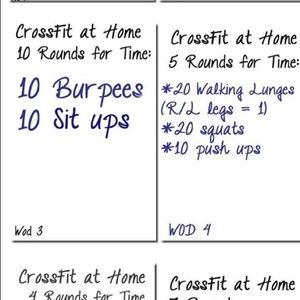 CrossFit at Home
10 Rounds for Time:
10 Burpees
10 Sit ups
Wod 3
CrossFit at Home
5 Rounds for Time:
*20 Walking Lunges
(R/L legs = 1)
*20 squats
*10 push ups
WOD 4
CrossFit at Home
4 Rounds for Time
CrossFit at Home